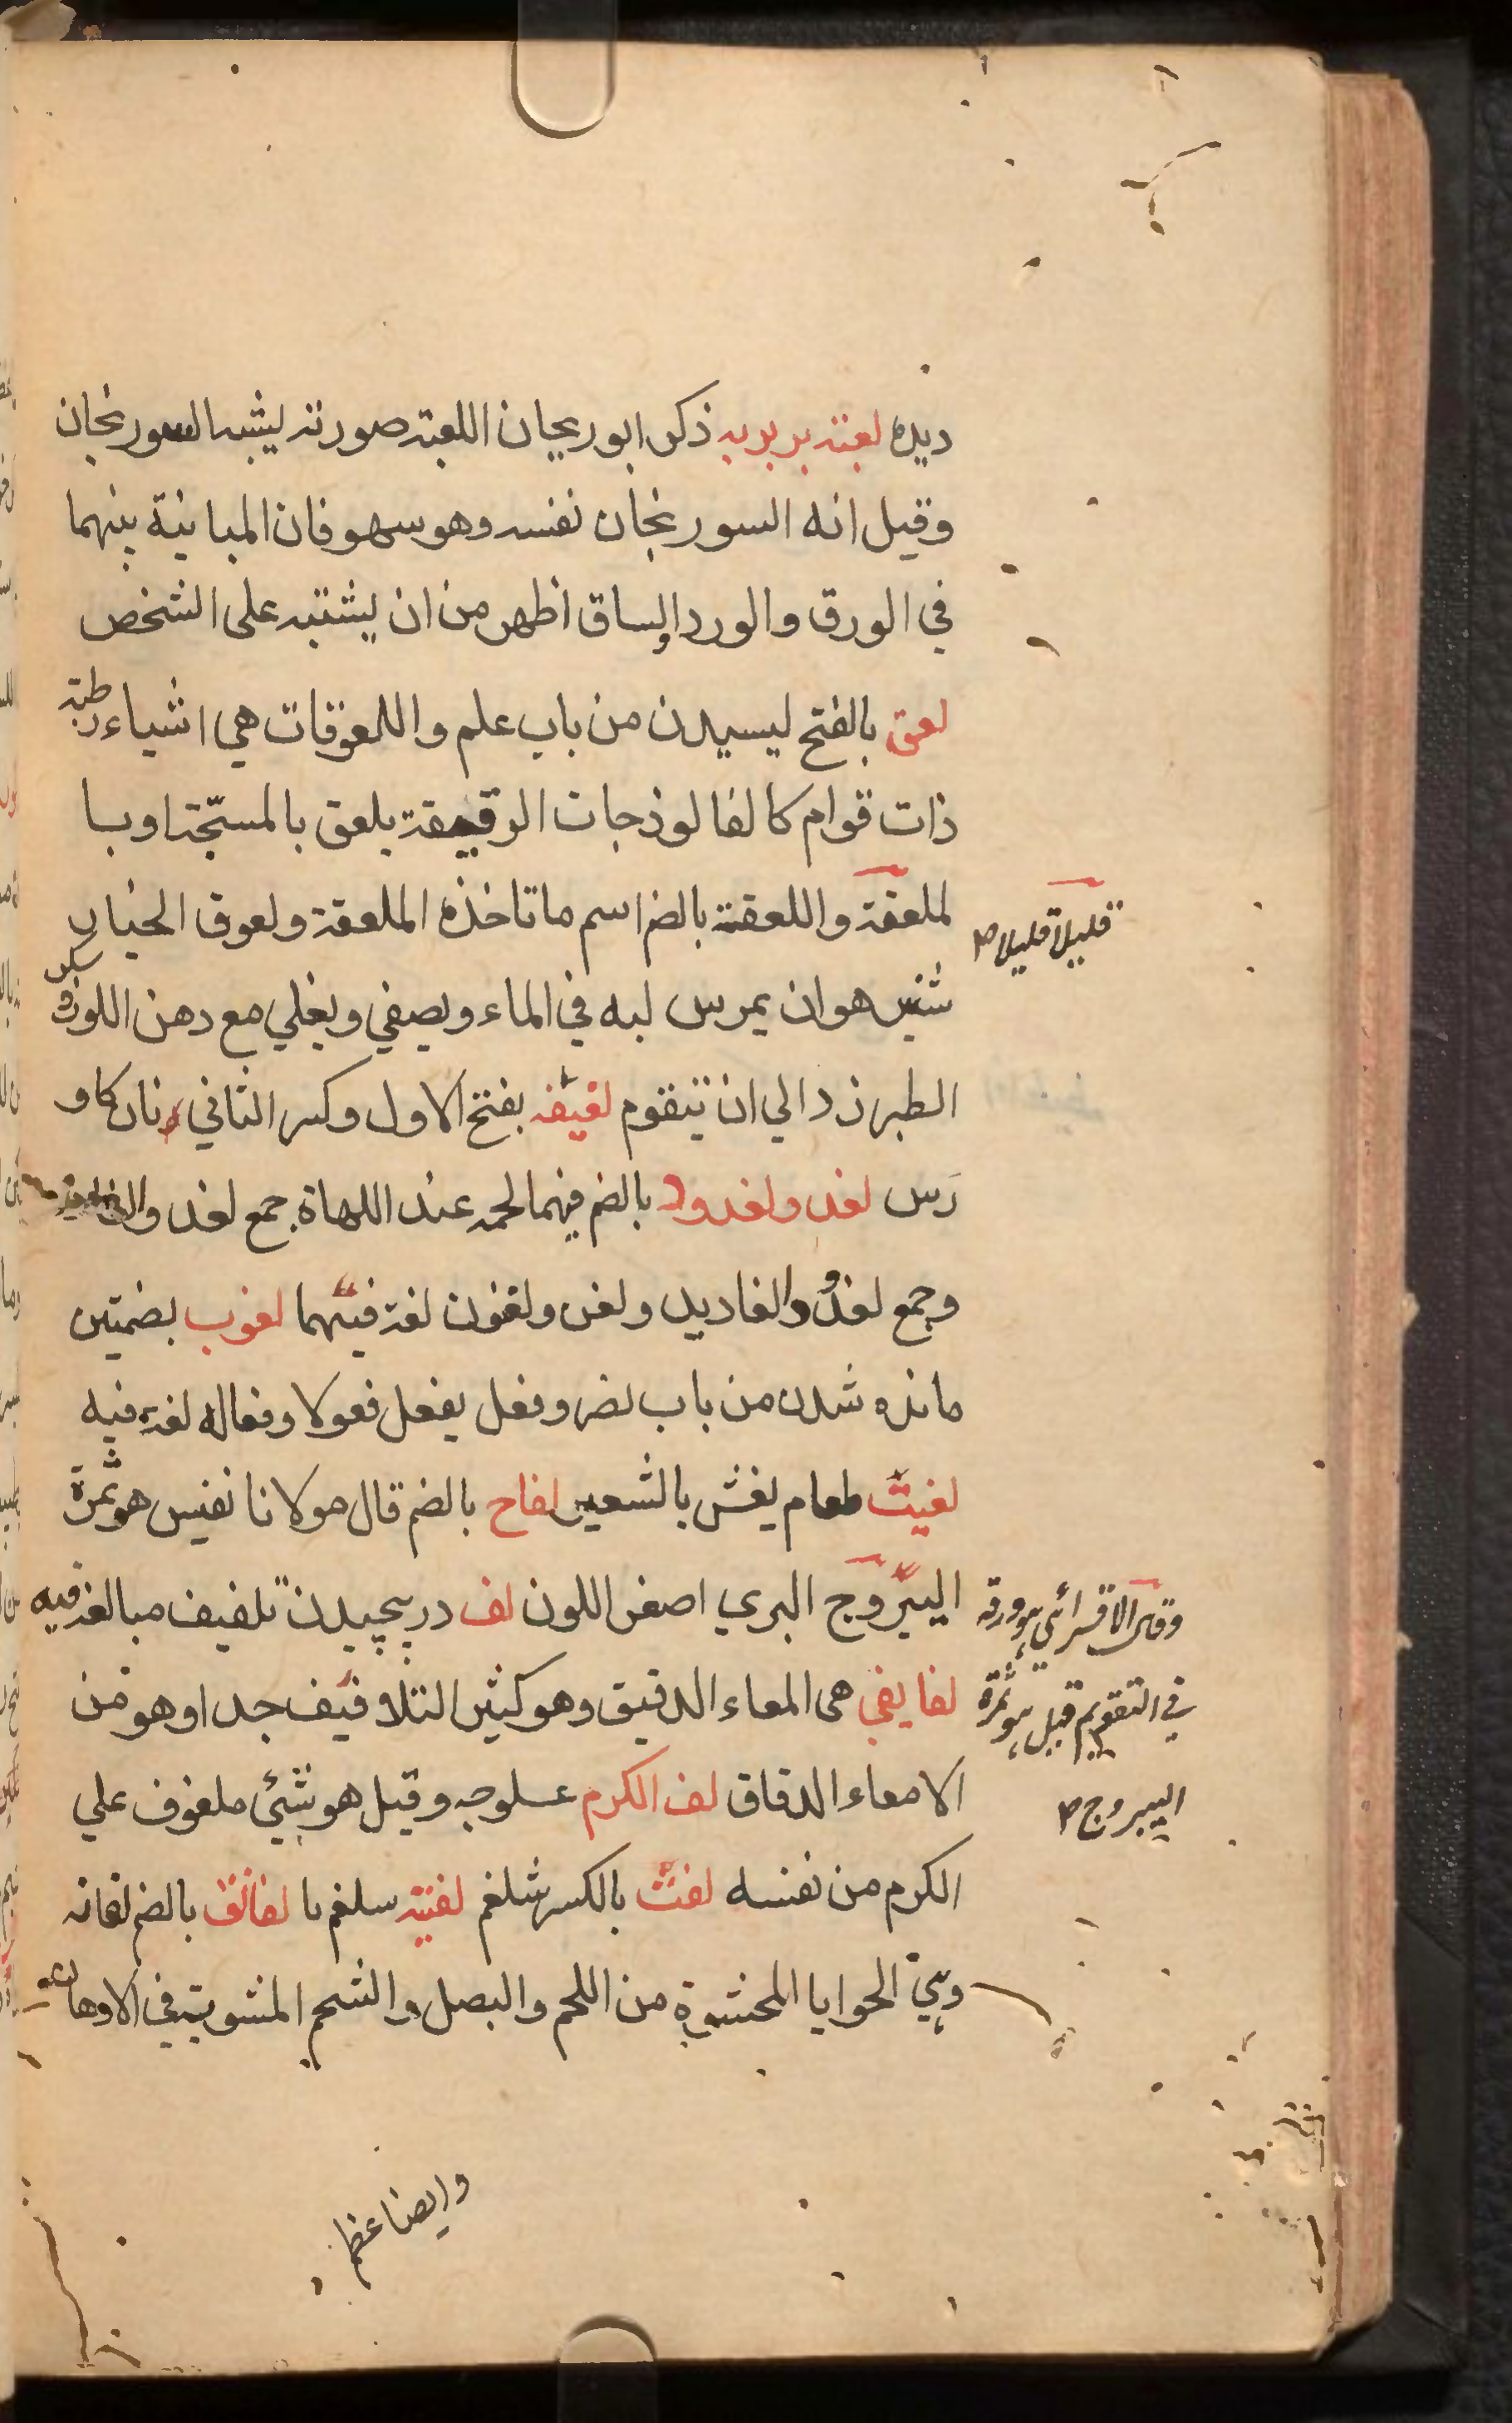 ديده لعبته بربريه ذكر ابو ريحان اللعبته صورته يشبه السورنجان
وقيل انه السورنجان نفسه وهو سهو فان المباينة بينهما
في الورق والورد والساق اظهر من ان يشتبه على الشخص
لعق بالفتح ليسيدن من باب علم واللعوقات هي اشياء رطبة
ذات قوام كالفالوذجات الرقيقة يلعق بالمسبّحة او با
لملعقة واللعقة بالضم اسم ما تاخذه الملعقة ولعوق الخيار
قليلا قليلا ص
شنبر هو ان يمرس لبه في الماء ويصفي ويغلي مع دهن اللوز و سكر
الطبرزد الي ان يتقوم لغيفه بفتح الاول وكسر الثاني نان كاو
رس لغد ولغدود بالضم فيهما لحمه عند اللهاة جمع لغد
وجمع لغدود الغاديد ولغن ولغنون لغة فيهما لغوب بضمتين
مانده شدن من باب نصر وفعل يفعل فعولا وفعاله لغة فيه
لغيث طعام يغش بالشعير لفاح بالضم قال مولانا نفيس هو ثمرة
اليبروج البري اصفر اللون لف در پيچيدن تلفيف مبالغة فيه
وقال الاقسرائي هو ورقه
لفايفي هى المعاء الدقيق وهو كثير التلافيف جدا وهو من
في التقويم قيل هو ثمرة
الامعاء الدقاق لف الكرم عسلوجه وقيل هو شيئ ملفوف علي
اليبروج ص
الكرم من نفسه لفت بالكسر شلغم لفتيه سلغم با لفانق بالضم لفانه
وهي الحوايا المحشوة من اللحم والبصل والشحم المشوية في الادهان
وايضا عظم